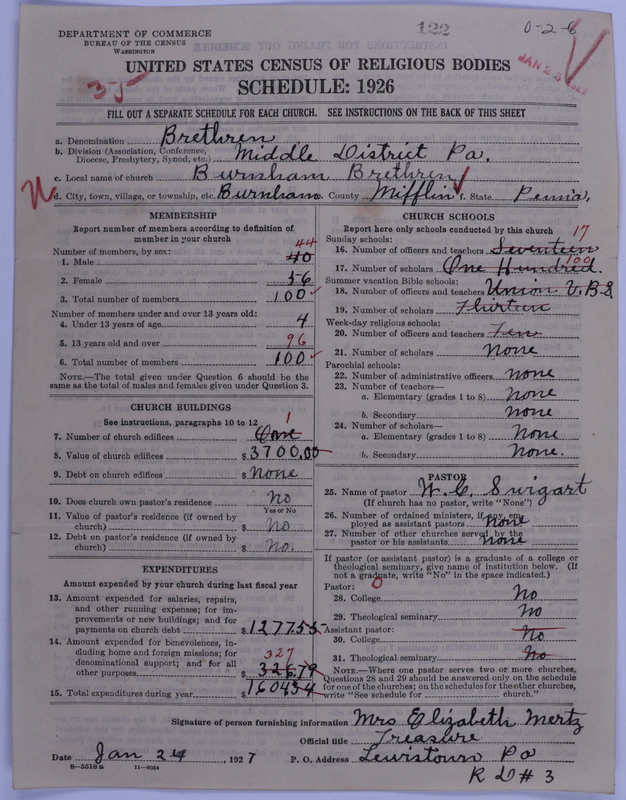 122
0-2-6
DEPARTMENT OF COMMERCE
BUREAU OF THE CENSUS
WASHINGTON
JAN 26 1927
UNITED STATES CENSUS OF RELIGIOUS BODIES
3-5
SCHEDULE: 1926
FILL OUT A SEPARATE SCHEDULE FOR EACH CHURCH. SEE INSTRUCTIONS ON THE BACK OF THIS SHEET
a. Denomination Brethren
b. Division (Association, Conference, Diocese, Presbytery, Synod, etc.) Middle District Pa.
c. Local name of church Burnham Brethren
d. City, town, village, or township, etc. Burnham e. County Mifflin f. State Penna.
MEMBERSHIP
Report number of members according to definition of
member in your church
Number of members, by sex: 44
1. Male 40
2. Female 56
3. Total number of members 100
Number of members under and over 13 years old:
4. Under 13 years of age 4
5. 13 years old and over 96
6. Total number of members 100
NOTE.—The total given under Question 6 should be
same as the total of males and females given under Question 3.
CHURCH BUILDINGS
See instructions, paragraphs 10 to 12
1
7. Number of church edifices One
8. Value of church edifices $3700.00
9. Debt on church edifices $None
10. Does church own pastor's residence No
Yes or No
11. Value of pastor's residence (if owned by
church) $ No
12. Debt on pastor's residence (if owned by
church) $ No.
EXPENDITURES
Amount expended by your church during last fiscal year
13. Amount expended for salaries, repairs,
and other running expenses; for im-
provements or new buildings; and for
payments on church debt $1277.55
14. Amount expended for benevolences, in-
cluding home and foreign missions; for
denominational support; and for all 327
other purposes $326.79
15. Total expenditures during year $1604.34
CHURCH SCHOOLS
Report here only schools conducted by this church
Sunday schools: 17
16. Number of officers and teachers Seventeen
100
17. Number of scholars One Hundred.
Summer vacation Bible schools:
18. Number of officers and teachers Union V.B.S.
19. Number of scholars Thirteen
Week-day religious schools:
20. Number of officers and teachers Ten
21. Number of scholars None
Parochial schools:
22. Number of administrative officers none
23. Number of teachers—
a. Elementary (grades 1 to 8) none
b. Secondary none
24. Number of scholars—
a. Elementary (grades 1 to 8) none
b. Secondary none.
PASTOR
25. Name of pastor W. C. Swigart
(If church has no pastor, write "None")
26. Number of ordained ministers, if any, em-
ployed as assistant pastors none
27. Number of other churches served by the
pastor or his assistants none
If pastor (or assistant pastor) is a graduate of a college or
theological seminary, give name of institution below. (If
not a graduate, write "No" in the space indicated.)
Pastor: 0
28. College No
29. Theological seminary No
Assistant pastor:
30. College No
31. Theological seminary No
NOTE.—Where one pastor serves two or more churches,
Questions 28 and 29 should be answered only on the schedule
for one of the churches; on the schedules for the other churches,
write "See schedule for ______ church."
Signature of person furnishing information Mrs Elizabeth Mertz
Official title Treasure
Date Jan 24, 1927 P. O. Address Lewistown Pa
8-5518 a 11-9034 R D # 3